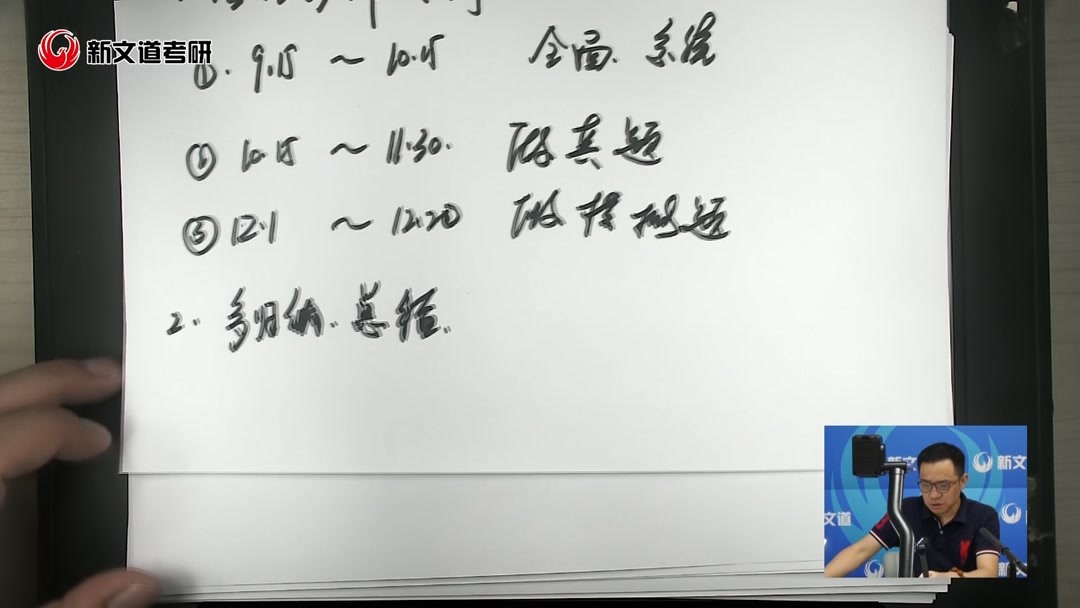 新文道考研
①. 9.15 ~ 10.15 全面. 系统
② 10.15 ~ 11.30. 做真题
③ 12.1 ~ 12.20 做模拟题
2. 多归纳. 总结.
新文
新文道